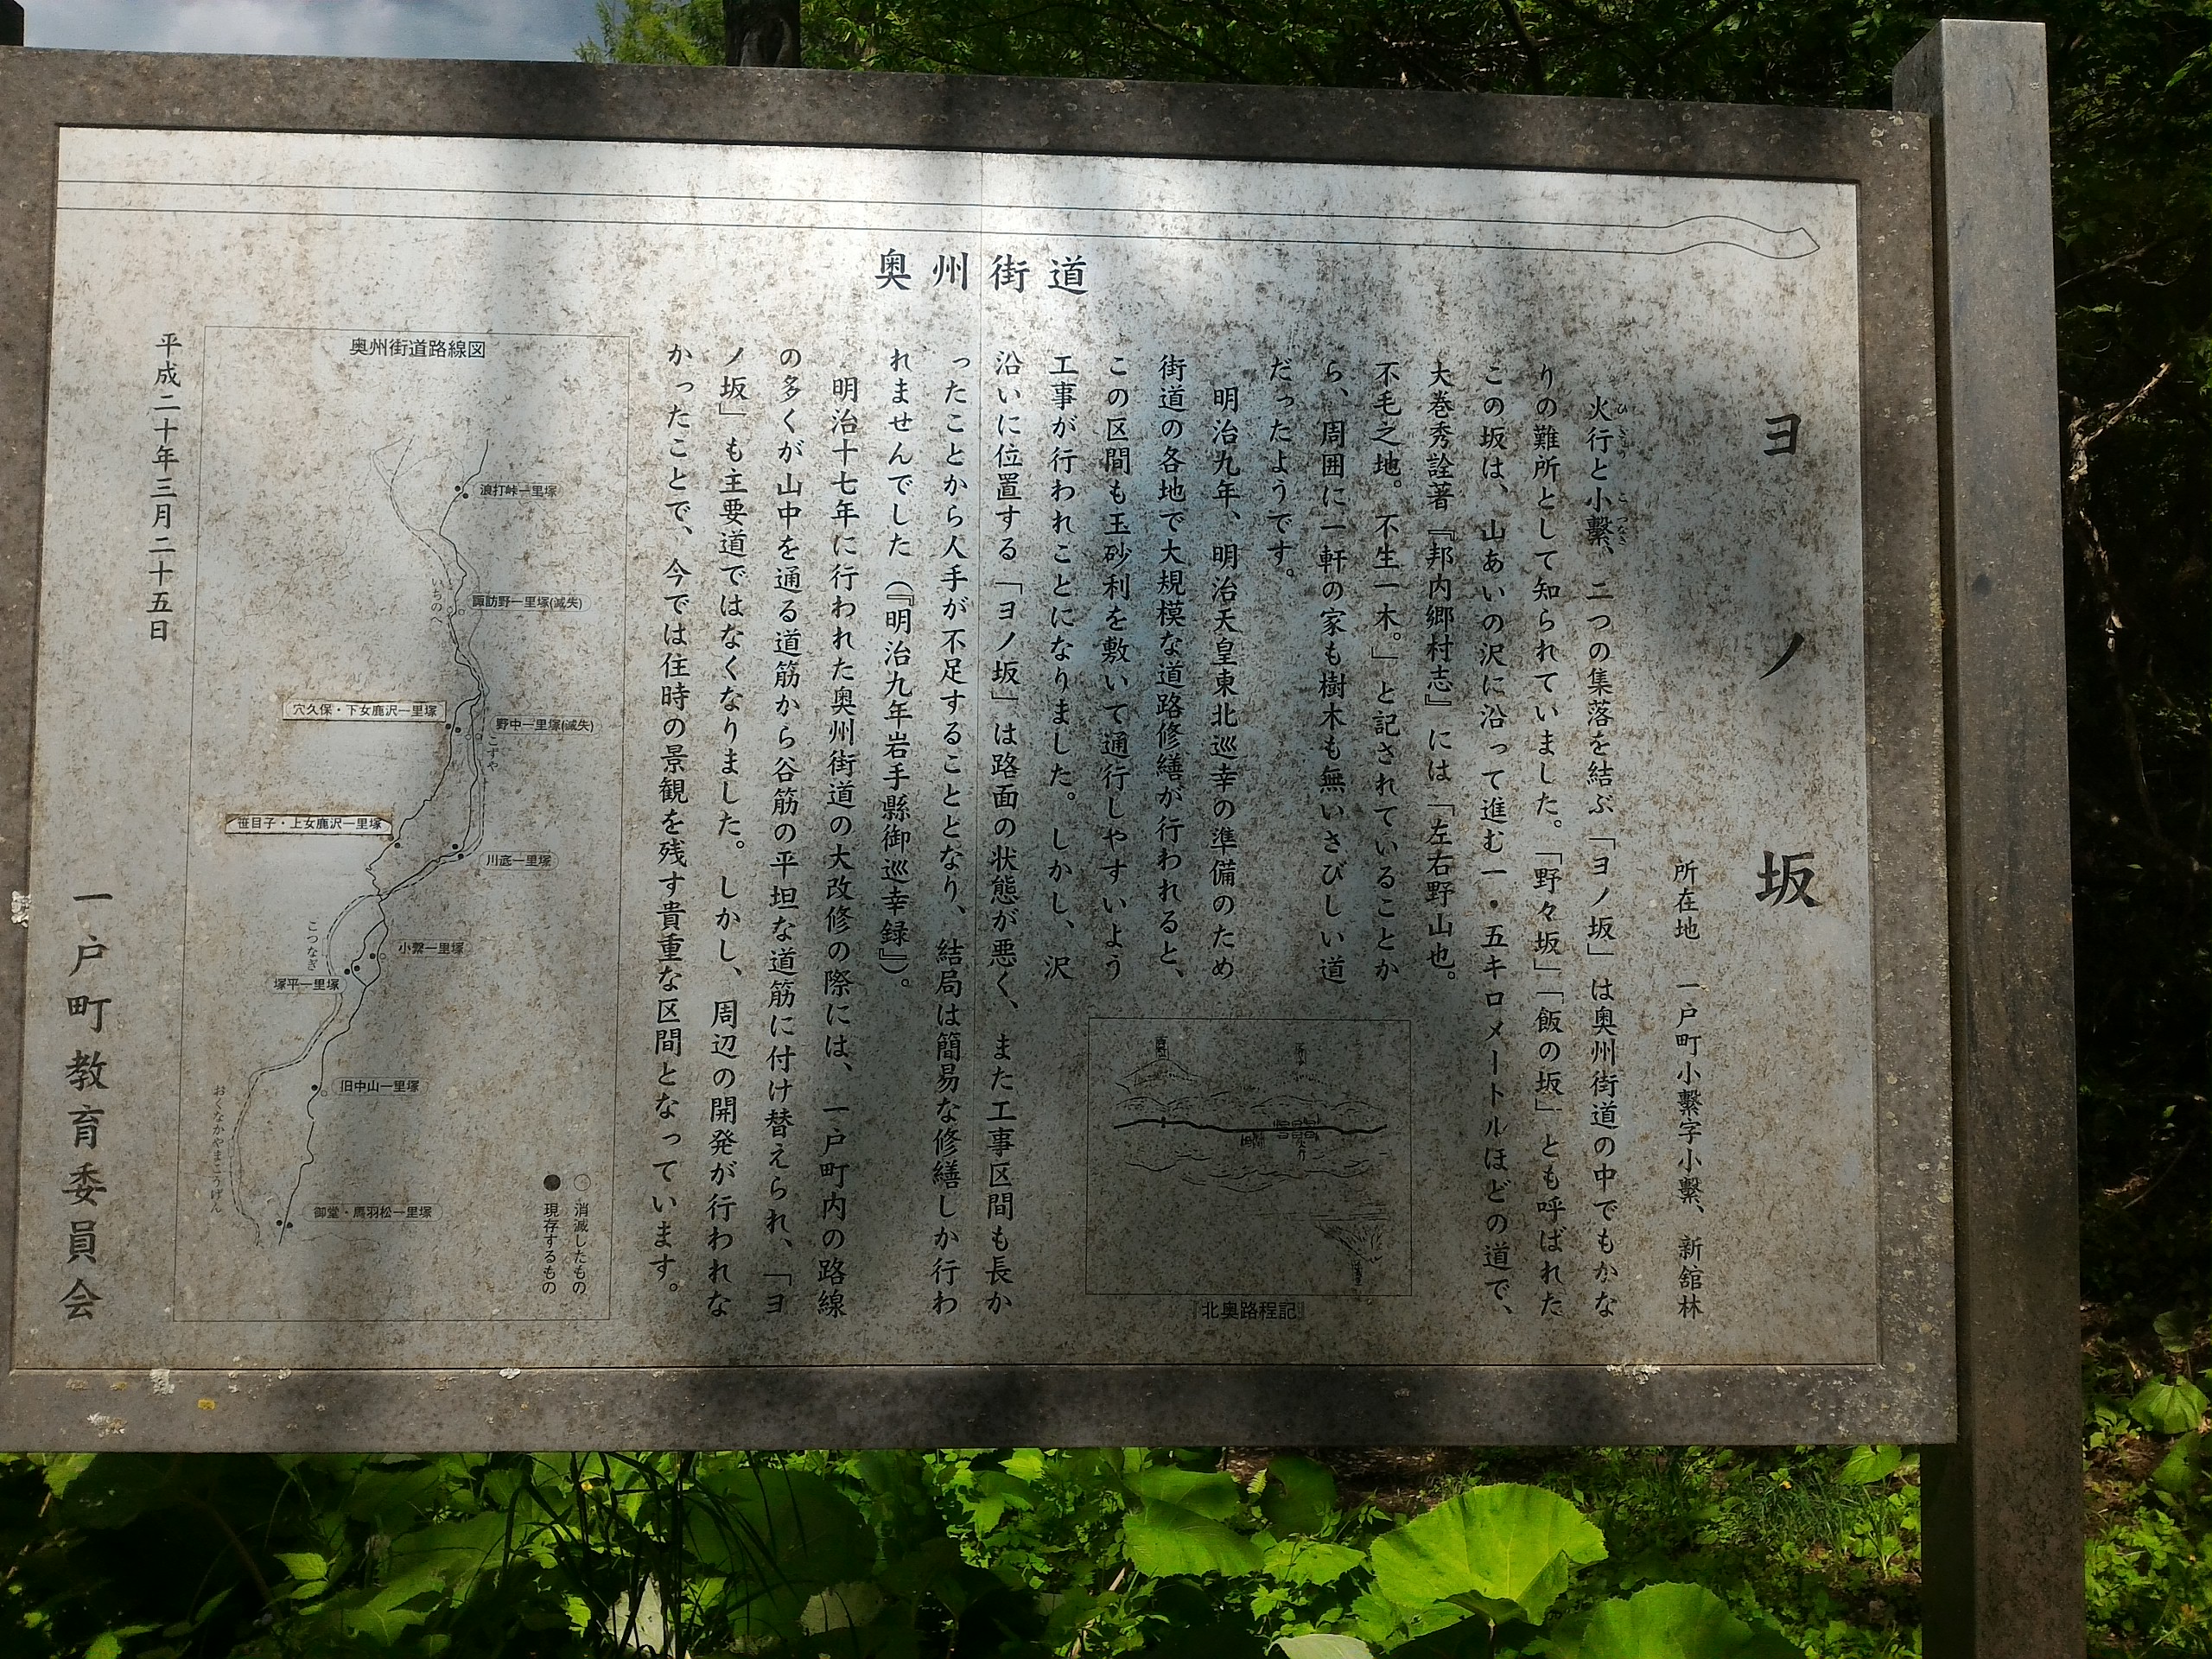 奥州街道
ヨノ坂
所在地 一戸町小繋字小繋、新舘林
火行と小繋、二つの集落を結ぶ「ヨノ坂」は奥州街道の中でもかな
りの難所として知られていました。「野々坂」「飯の坂」とも呼ばれた
この坂は、山あいの沢に沿って進む一・五キロメートルほどの道で、
大巻秀詮著『邦内郷村志』には「左右野山也。
不毛之地。不生一木。」と記されていることか
ら、周囲に一軒の家も樹木も無いさびしい道
だったようです。
明治九年、明治天皇東北巡幸の準備のため
街道の各地で大規模な道路修繕が行われると、
この区間も玉砂利を敷いて通行しやすいよう
工事が行われことになりました。しかし、沢
沿いに位置する「ヨノ坂」は路面の状態が悪く、また工事区間も長か
ったことから人手が不足することとなり、結局は簡易な修繕しか行わ
れませんでした（『明治九年岩手縣御巡幸録』）。
明治十七年に行われた奥州街道の大改修の際には、一戸町内の路線
の多くが山中を通る道筋から谷筋の平坦な道筋に付け替えられ、「ヨ
ノ坂」も主要道ではなくなりました。しかし、周辺の開発が行われな
かったことで、今では往時の景観を残す貴重な区間となっています。
『北奥路程記』
奥州街道路線図
浪打峠一里塚
いちのへ
諏訪野一里塚(滅失)
穴久保・下女鹿沢一里塚
野中一里塚(滅失)
こずや
笹目子・上女鹿沢一里塚
川底一里塚
こつなぎ
小繋一里塚
塚平一里塚
旧中山一里塚
おくなかやまこうげん
御堂・馬羽松一里塚
○ 消滅したもの
● 現存するもの
平成二十年三月二十五日
一戸町教育委員会